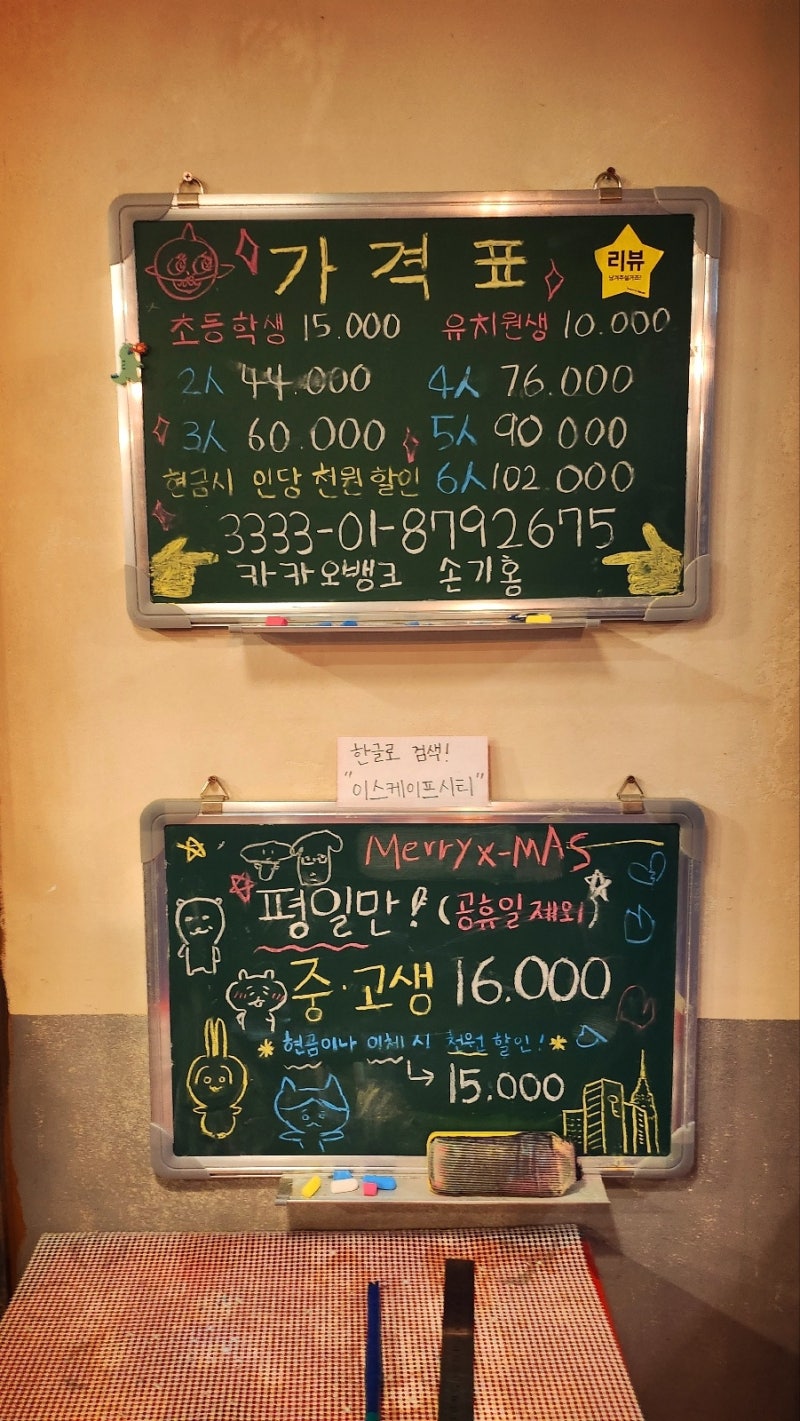 가격표
리뷰
남겨주실거죠?
초등학생 15.000 유치원생 10.000
2人 44.000 4人 76.000
3人 60.000 5人 90.000
현금시 인당 천원 할인 6人 102.000
3333-01-8792675
카카오뱅크 손기홍
한글로 검색!
"이스케이프시티"
Merry x-MAS
평일만! (공휴일 제외)
중·고생 16.000
*현금이나 이체 시 천원 할인!*
↳ 15.000